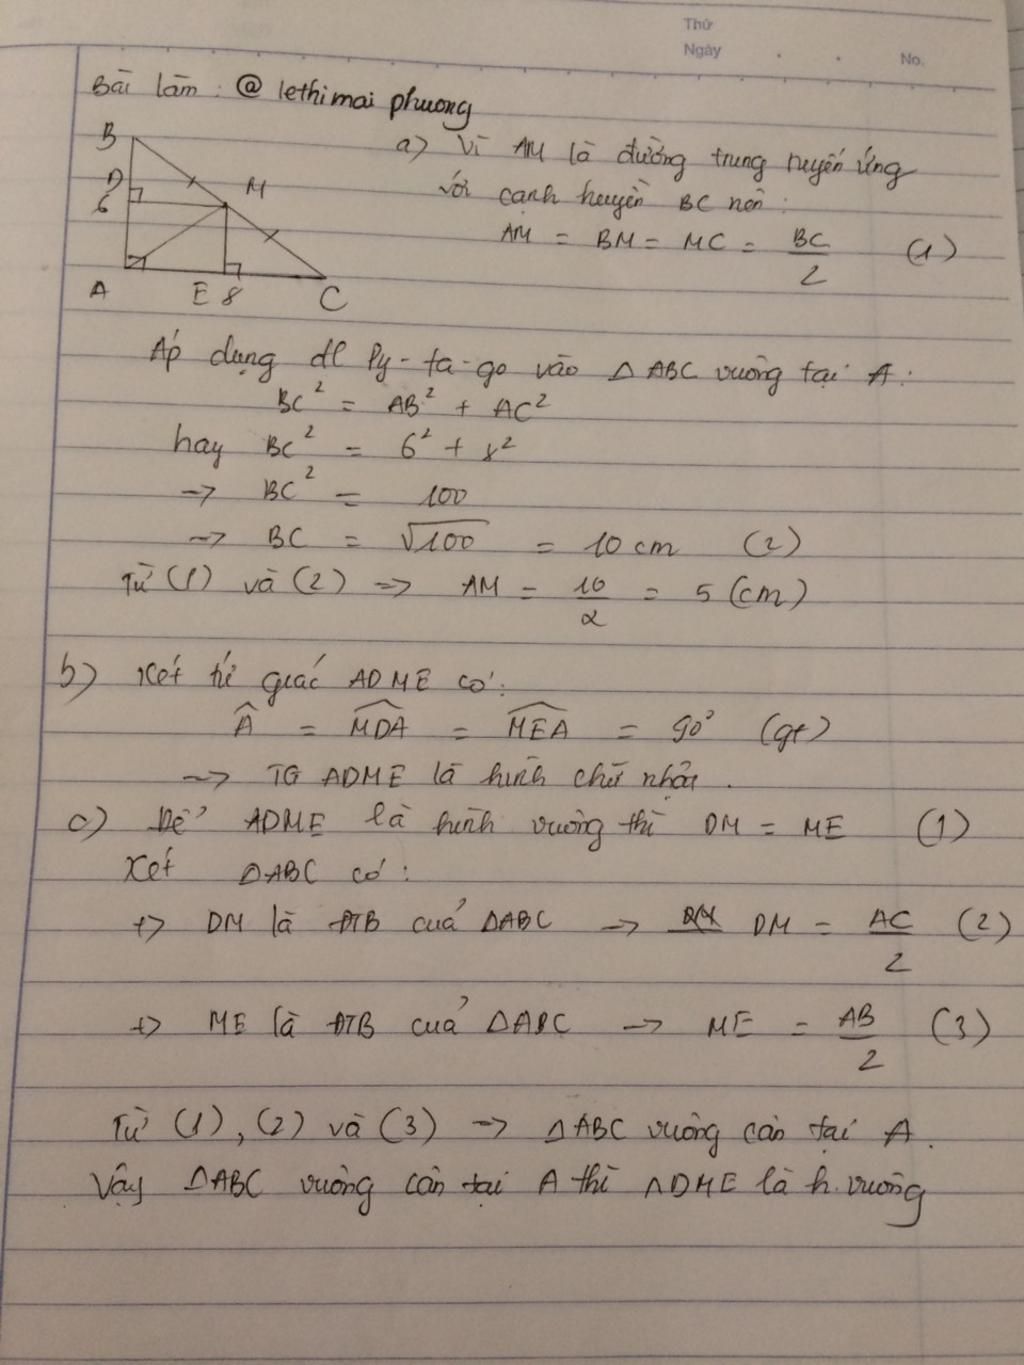 Thứ
Ngày . .
No.
Bài làm : @ lethimai phương
B
D
6
M
A
E 8
C
a) Vì AM là đường trung tuyến ứng
với cạnh huyền BC nên :
AM = BM = MC = BC/2 (1)
Áp dụng đl Py-ta-go vào Δ ABC vuông tại A :
BC² = AB² + AC²
hay BC² = 6² + 8²
→ BC² = 100
→ BC = √100 = 10 cm (2)
Từ (1) và (2) → AM = 10/2 = 5 (cm)
b) Xét tứ giác ADME có :
Â = M̂DA = M̂EA = 90° (gt)
→ TG ADME là hình chữ nhật .
c) Để ADME là hình vuông thì DM = ME (1)
Xét ΔABC có :
+> DM là ĐTB của ΔABC → DM = AC/2 (2)
+> ME là ĐTB của ΔABC → ME = AB/2 (3)
Từ (1), (2) và (3) → ΔABC vuông cân tại A.
Vậy ΔABC vuông cân tại A thì ADME là h. vuông